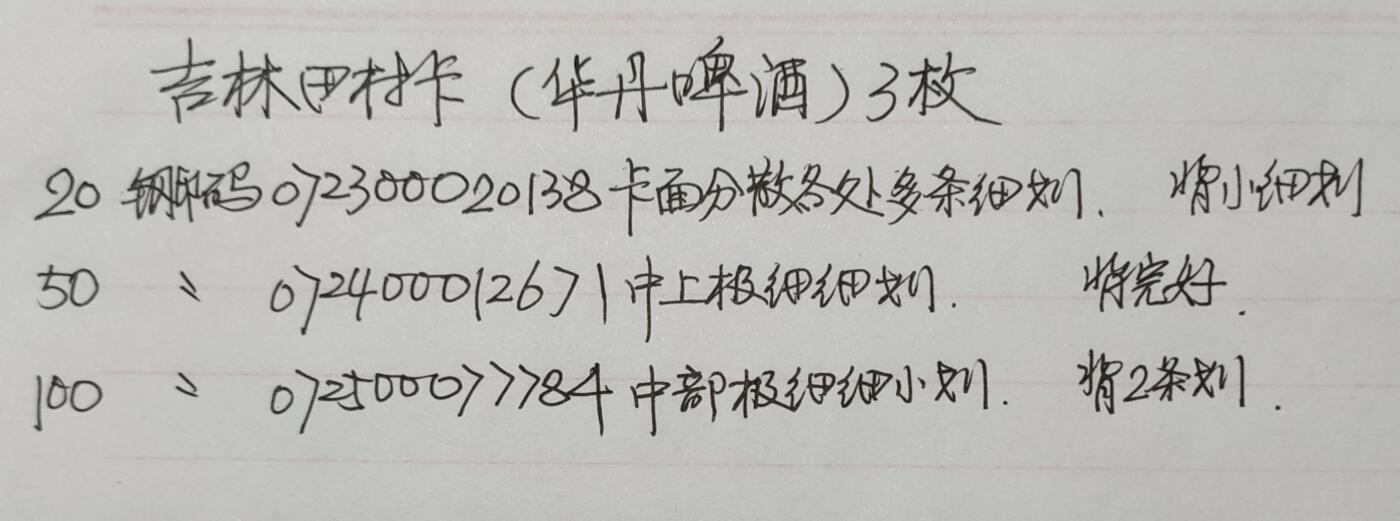 吉林田村卡（华丹啤酒）3枚
20 钢印码 072300020138 卡面分散各处多条细划. 背小细划
50 〃 072400012671 中上极细细划. 背完好.
100 〃 072500077784 中部极细细小划. 背2条划.